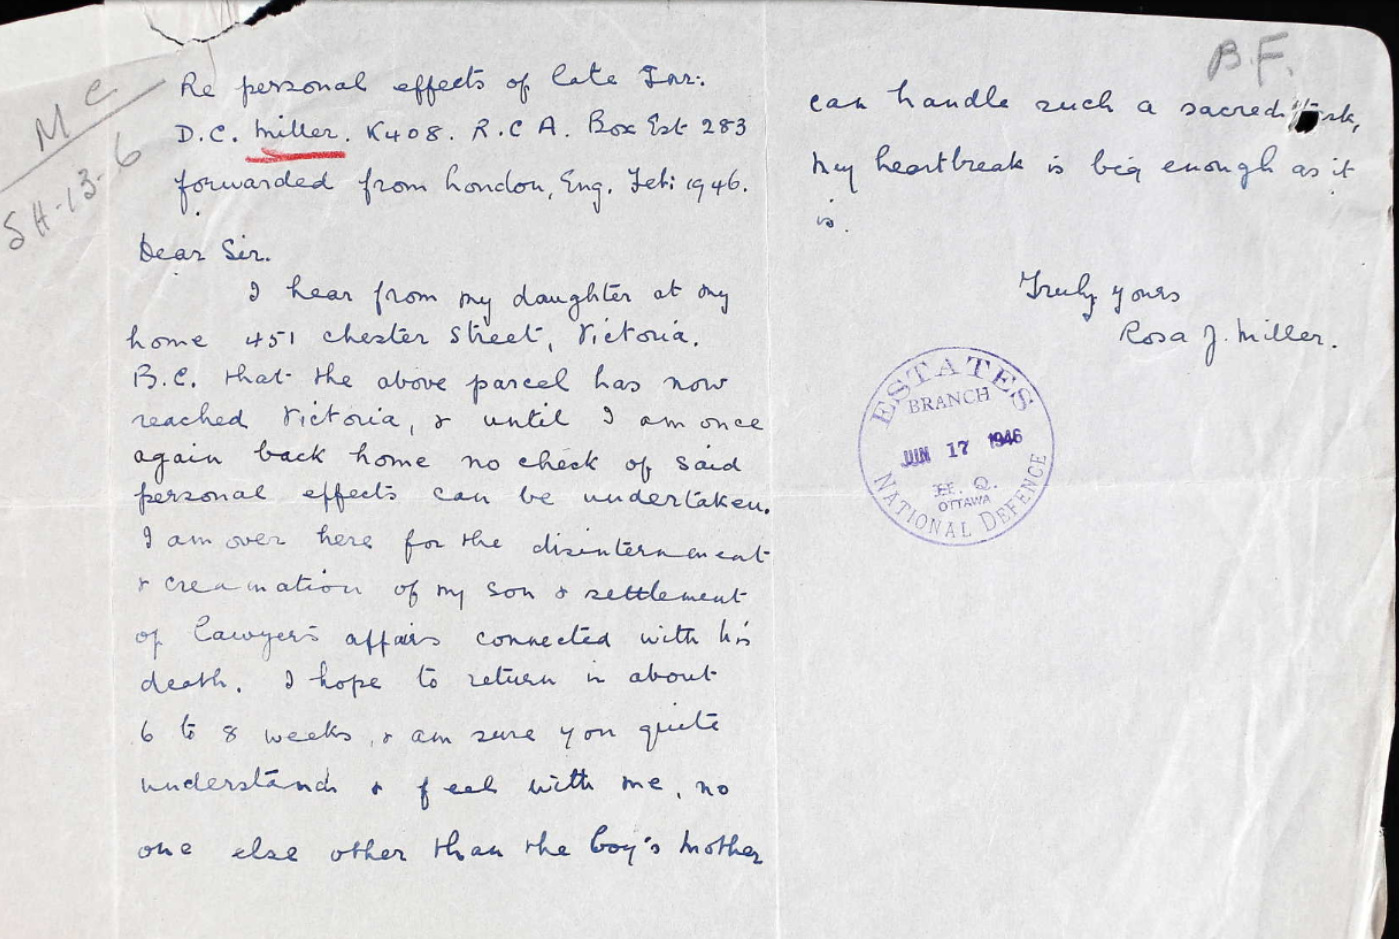 Mc
SH-13-6
Re personal effects of late Gnr:
D.C. Miller. K408. R.C A. Box Est 283
forwarded from London, Eng. Feb: 1946.
Dear Sir.
I hear from my daughter at my
home 451 Chester Street, Victoria.
B.C. that the above parcel has now
reached Victoria, & until I am once
again back home no check of said
personal effects can be undertaken.
I am over here for the disinternment
& creamation of my son & settlement
of Lawyer's affairs connected with his
death. I hope to return in about
6 to 8 weeks, & am sure you quite
understand & feel with me, no
one else other than the boy's Mother
B.F.
can handle such a sacred task,
My heartbreak is big enough as it
is.
Truly yours
Rosa J. Miller.
ESTATES
BRANCH
JUN 17 1946
H. Q.
OTTAWA
NATIONAL DEFENCE